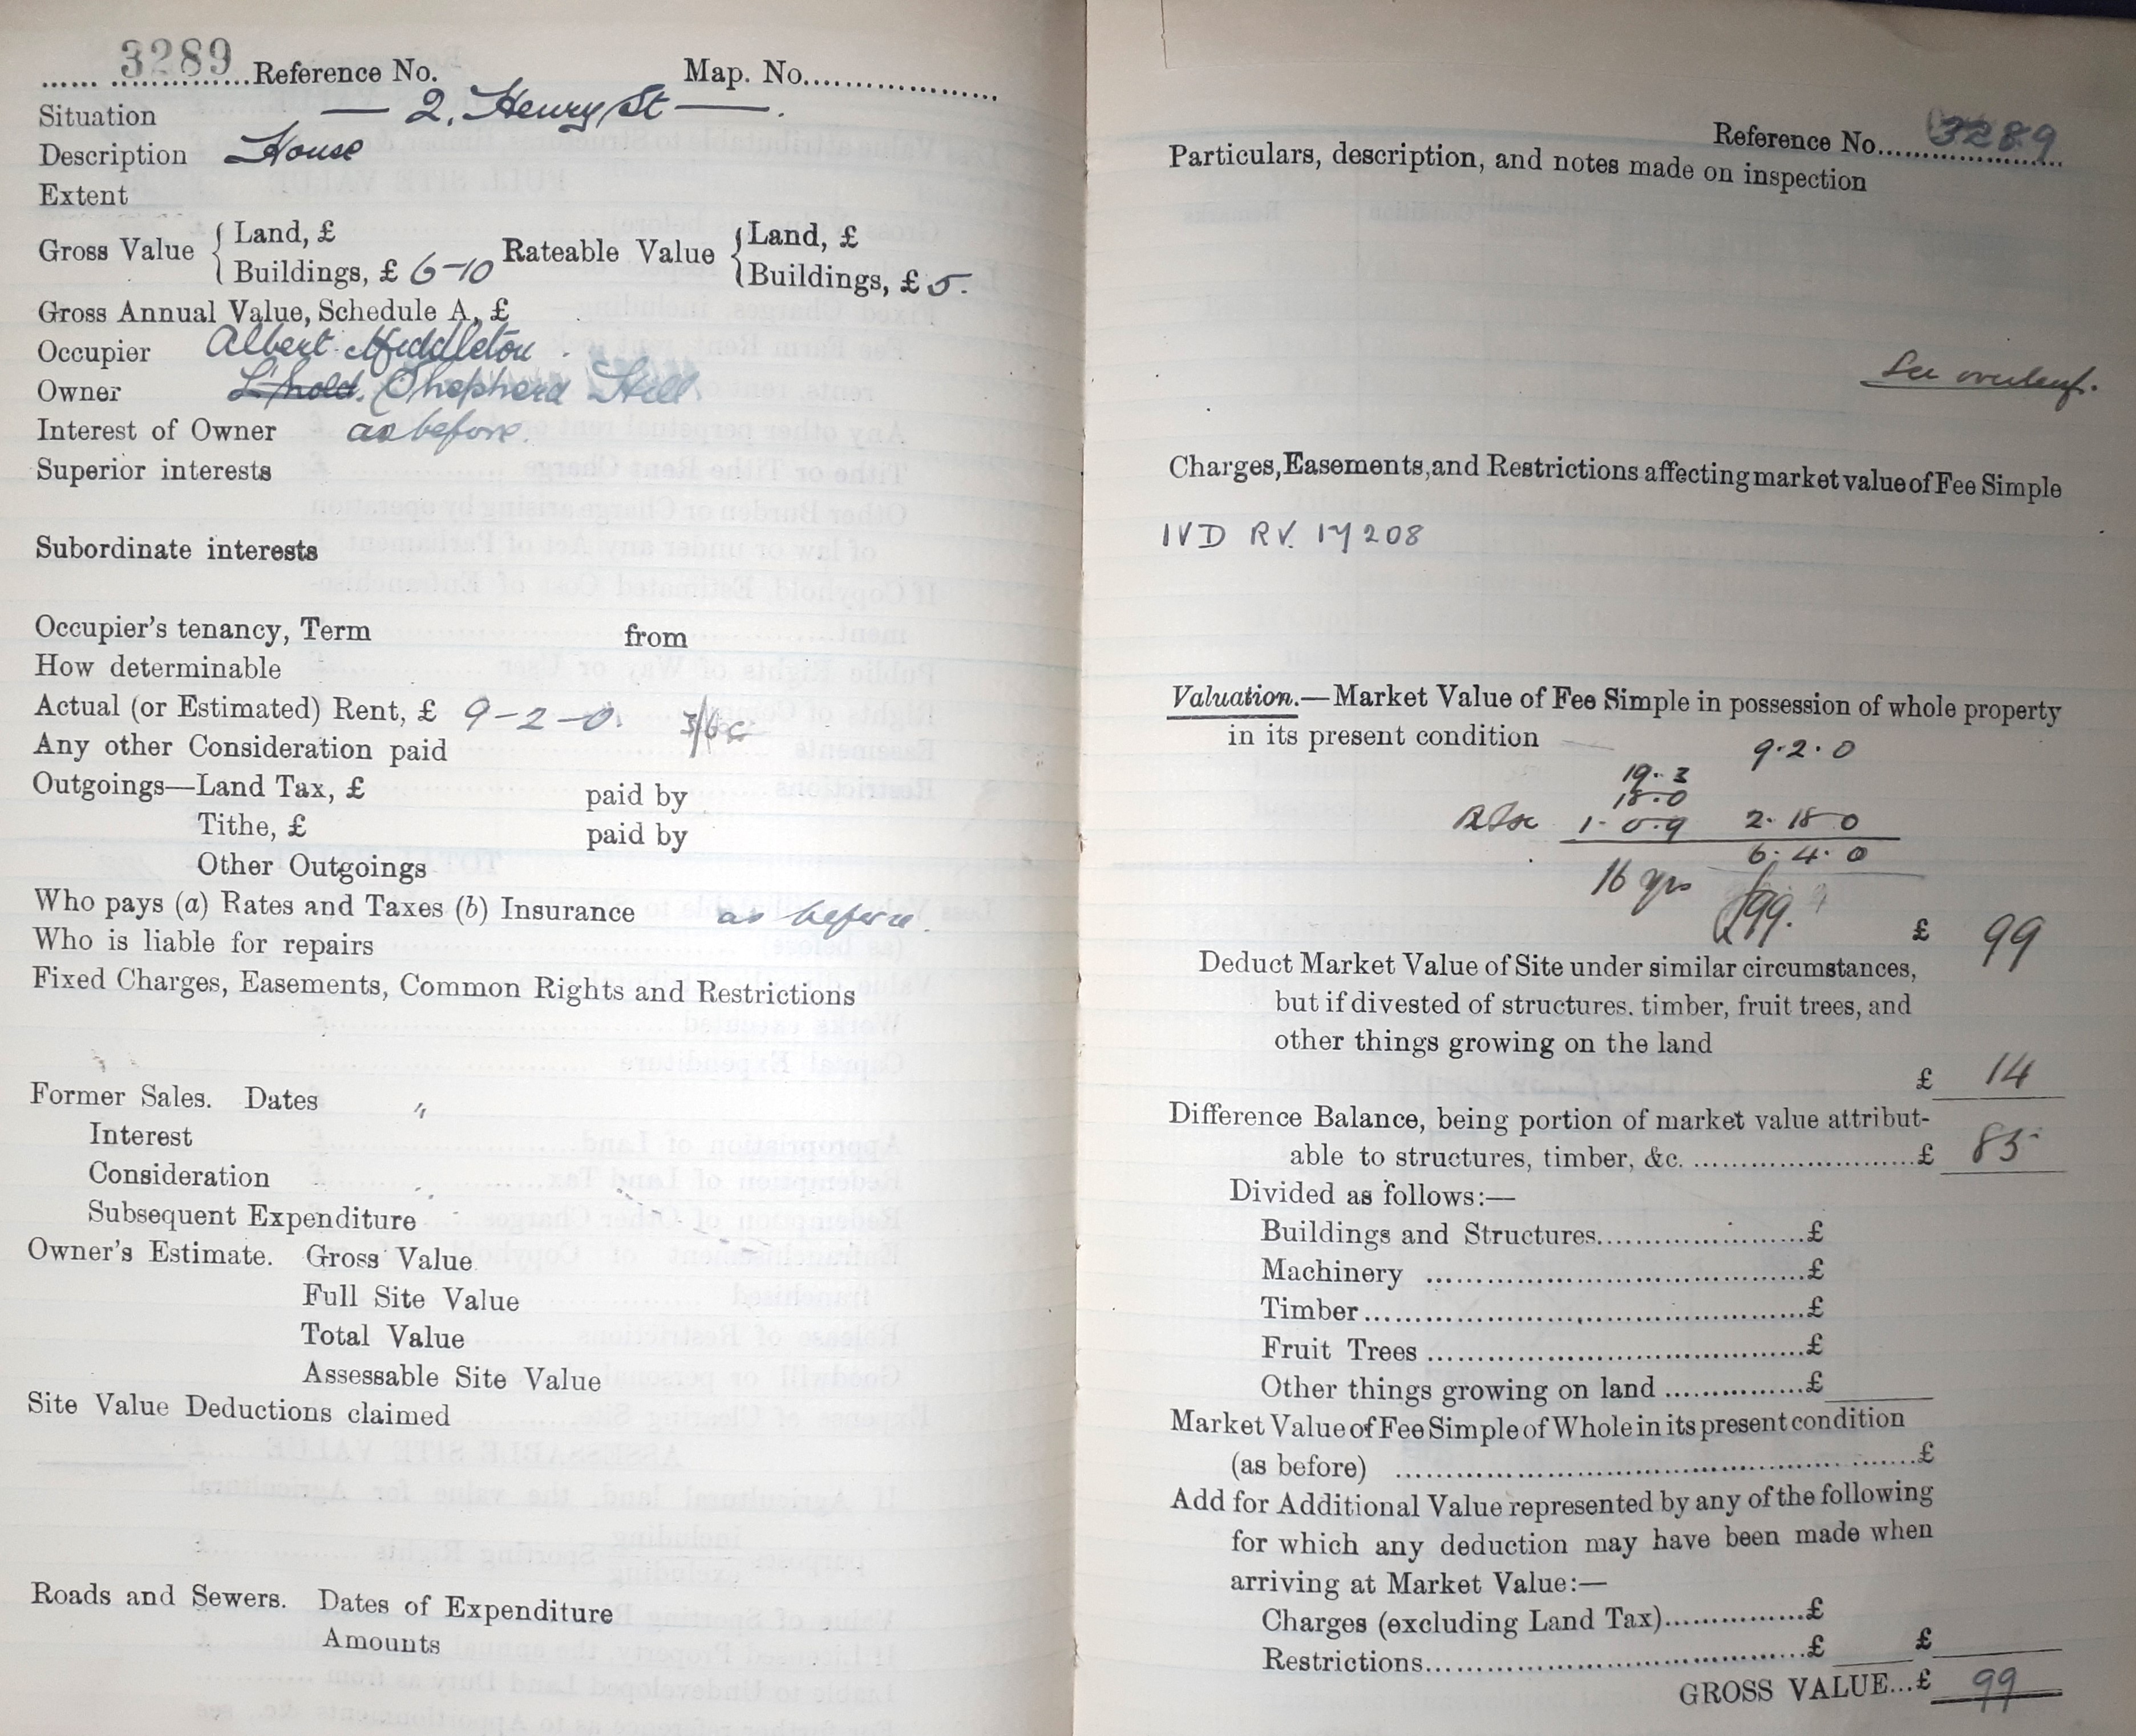 3289 Reference No. Map. No.
Situation — 2, Henry St —.
Description House
Extent
Gross Value { Land, £ Rateable Value { Land, £
Buildings, £ 6-10 Buildings, £ 5.
Gross Annual Value, Schedule A, £
Occupier Albert Middleton.
Owner L'hold. Shepherd Hill
Interest of Owner as before.
Superior interests
Subordinate interests
Occupier's tenancy, Term from
How determinable
Actual (or Estimated) Rent, £ 9-2-0. 3/6
Any other Consideration paid
Outgoings—Land Tax, £ paid by
Tithe, £ paid by
Other Outgoings
Who pays (a) Rates and Taxes (b) Insurance as before.
Who is liable for repairs
Fixed Charges, Easements, Common Rights and Restrictions
Former Sales. Dates "
Interest
Consideration
Subsequent Expenditure
Owner's Estimate. Gross Value
Full Site Value
Total Value
Assessable Site Value
Site Value Deductions claimed
Roads and Sewers. Dates of Expenditure
Amounts
Reference No. 3289
Particulars, description, and notes made on inspection
See overleaf.
Charges, Easements, and Restrictions affecting market value of Fee Simple
IVD RV. 17208
Valuation.—Market Value of Fee Simple in possession of whole property
in its present condition 9.2.0
19.3
18.0
1.0.9 2.18.0
6.4.0
16 yrs £99.
£ 99
Deduct Market Value of Site under similar circumstances,
but if divested of structures. timber, fruit trees, and
other things growing on the land
£ 14
Difference Balance, being portion of market value attribut-
able to structures, timber, &c. £ 85
Divided as follows:—
Buildings and Structures £
Machinery £
Timber £
Fruit Trees £
Other things growing on land £
Market Value of Fee Simple of Whole in its present condition
(as before) £
Add for Additional Value represented by any of the following
for which any deduction may have been made when
arriving at Market Value:—
Charges (excluding Land Tax) £
Restrictions £ £
GROSS VALUE...£ 99